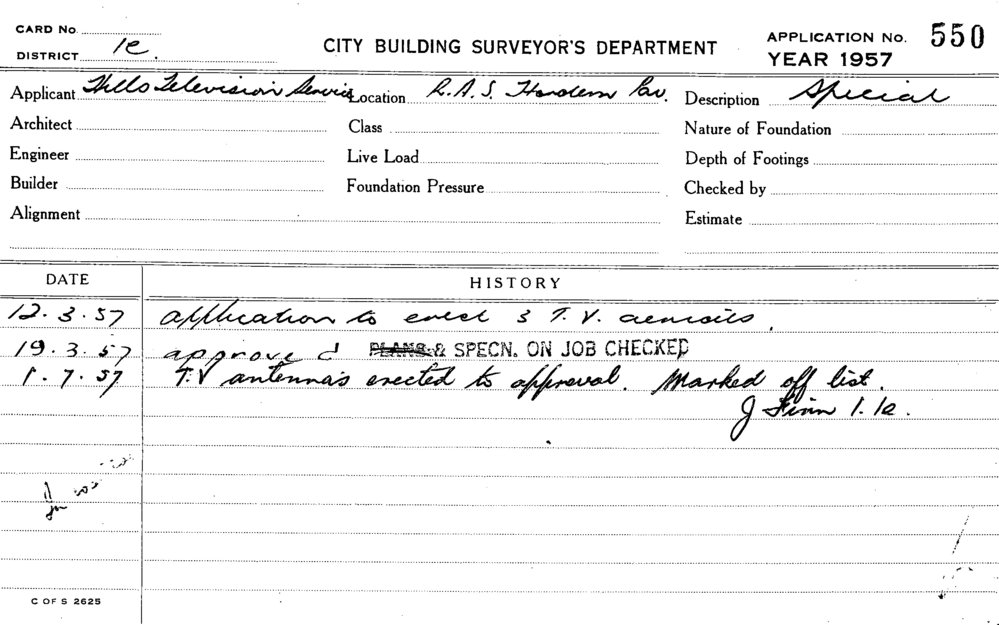 CARD No.
DISTRICT 1e.
CITY BUILDING SURVEYOR'S DEPARTMENT
APPLICATION No. 550
YEAR 1957
Applicant Hills Television Service Location R.A.S. Hordern Pav. Description Special
Architect Class Nature of Foundation
Engineer Live Load Depth of Footings
Builder Foundation Pressure Checked by
Alignment Estimate
DATE HISTORY
12.3.57 application to erect 3 T.V. aerials.
19.3.57 approved PLANS & SPECN. ON JOB CHECKED
1.7.57 T.V antennas erected to approval. Marked off list.
J Finn 1.1e.
C OF S 2625